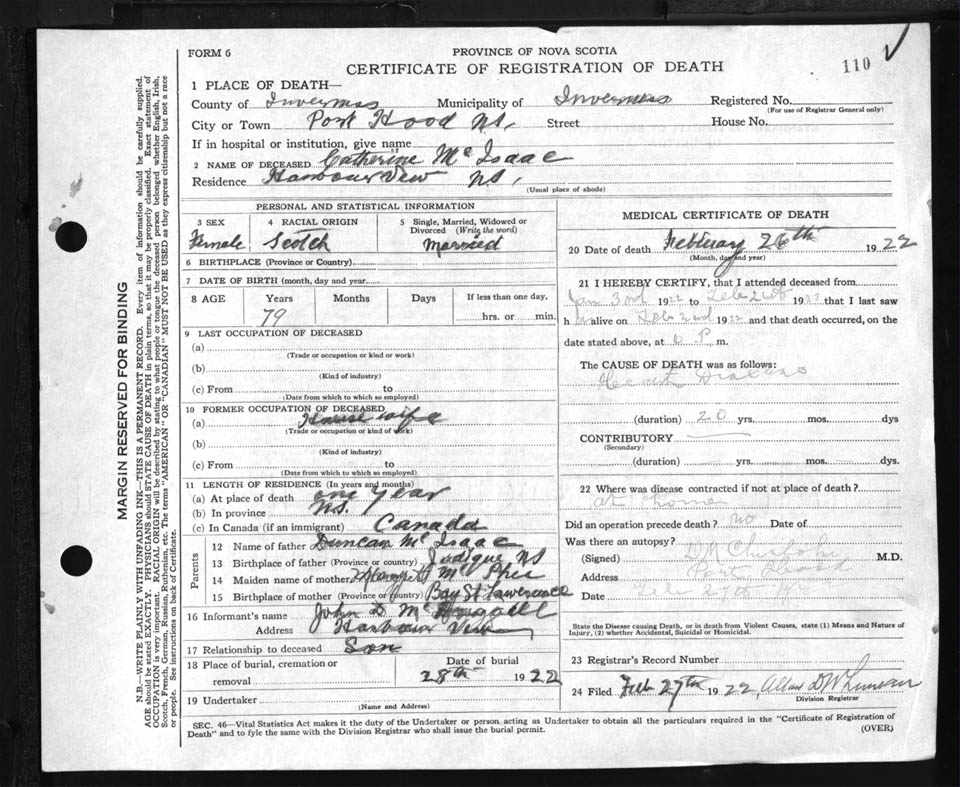 FORM 6
PROVINCE OF NOVA SCOTIA
CERTIFICATE OF REGISTRATION OF DEATH
110
MARGIN RESERVED FOR BINDING
N.B.—WRITE PLAINLY WITH UNFADING INK—THIS IS A PERMANENT RECORD. Every item of information should be carefully supplied.
AGE should be stated EXACTLY. PHYSICIANS should STATE CAUSE OF DEATH in plain terms, so that it may be properly classified. Exact statement of
OCCUPATION is very important. RACIAL ORIGIN will be described by stating to what people or tongue the deceased person belonged whether English, Irish,
Scotch, French, German, Russian, Ruthenian, etc. The terms "AMERICAN" OR "CANADIAN" MUST NOT BE USED as they express citizenship but not a race
or people. See instructions on back of Certificate.
1 PLACE OF DEATH—
County of Inverness Municipality of Inverness Registered No.
(For use of Registrar General only)
City or Town Port Hood NS. Street House No.
If in hospital or institution, give name
2 NAME OF DECEASED Catherine Mc Isaac
Residence Harbour View NS.
(Usual place of abode)
PERSONAL AND STATISTICAL INFORMATION
3 SEX 4 RACIAL ORIGIN 5 Single, Married, Widowed or
Divorced (Write the word)
Female Scotch Married
6 BIRTHPLACE (Province or Country)
7 DATE OF BIRTH (month, day and year)
8 AGE Years Months Days If less than one day,
79 hrs. or min.
9 LAST OCCUPATION OF DECEASED
(a)
(Trade or occupation or kind or work)
(b)
(Kind of industry)
(c) From to
(Date from which to which so employed)
10 FORMER OCCUPATION OF DECEASED
(a) House wife
(Trade or occupation or kind of work)
(b)
(Kind of industry)
(c) From to
(Date from which to which so employed)
11 LENGTH OF RESIDENCE (In years and months)
(a) At place of death one year
(b) In province NS.
(c) In Canada (if an immigrant) Canada
Parents
12 Name of father Duncan Mc Isaac
13 Birthplace of father (Province or country) Judique NS
14 Maiden name of mother Margret Mc Phee
15 Birthplace of mother (Province or country) Bay St Lawerance
16 Informant's name John D Mc Dougall
Address Harbour View
17 Relationship to deceased Son
18 Place of burial, cremation or Date of burial
removal 28th 1922
19 Undertaker
(Name and Address)
MEDICAL CERTIFICATE OF DEATH
20 Date of death February 26th 1922
(Month, day and year)
21 I HEREBY CERTIFY, that I attended deceased from
Jan 3rd 1922 to Feb 26th 192 that I last saw
h alive on Feb 22nd 1922 and that death occurred, on the
date stated above, at 6 P m.
The CAUSE OF DEATH was as follows:
Heart Disease
(duration) 20 yrs. mos. dys
CONTRIBUTORY
(Secondary)
(duration) yrs. mos. dys.
22 Where was disease contracted if not at place of death?
at home
Did an operation precede death? no Date of
Was there an autopsy?
(Signed) D N Chisholm M.D.
Address Port Hood
Date Feb 27th
State the Disease causing Death, or in death from Violent Causes, state (1) Means and Nature of
Injury, (2) whether Accidental, Suicidal or Homicidal.
23 Registrar's Record Number
24 Filed Feb 27th 1922
Division Registrar
SEC. 46—Vital Statistics Act makes it the duty of the Undertaker or person acting as Undertaker to obtain all the particulars required in the "Certificate of Registration of
Death" and to fyle the same with the Division Registrar who shall issue the burial permit.
(OVER)